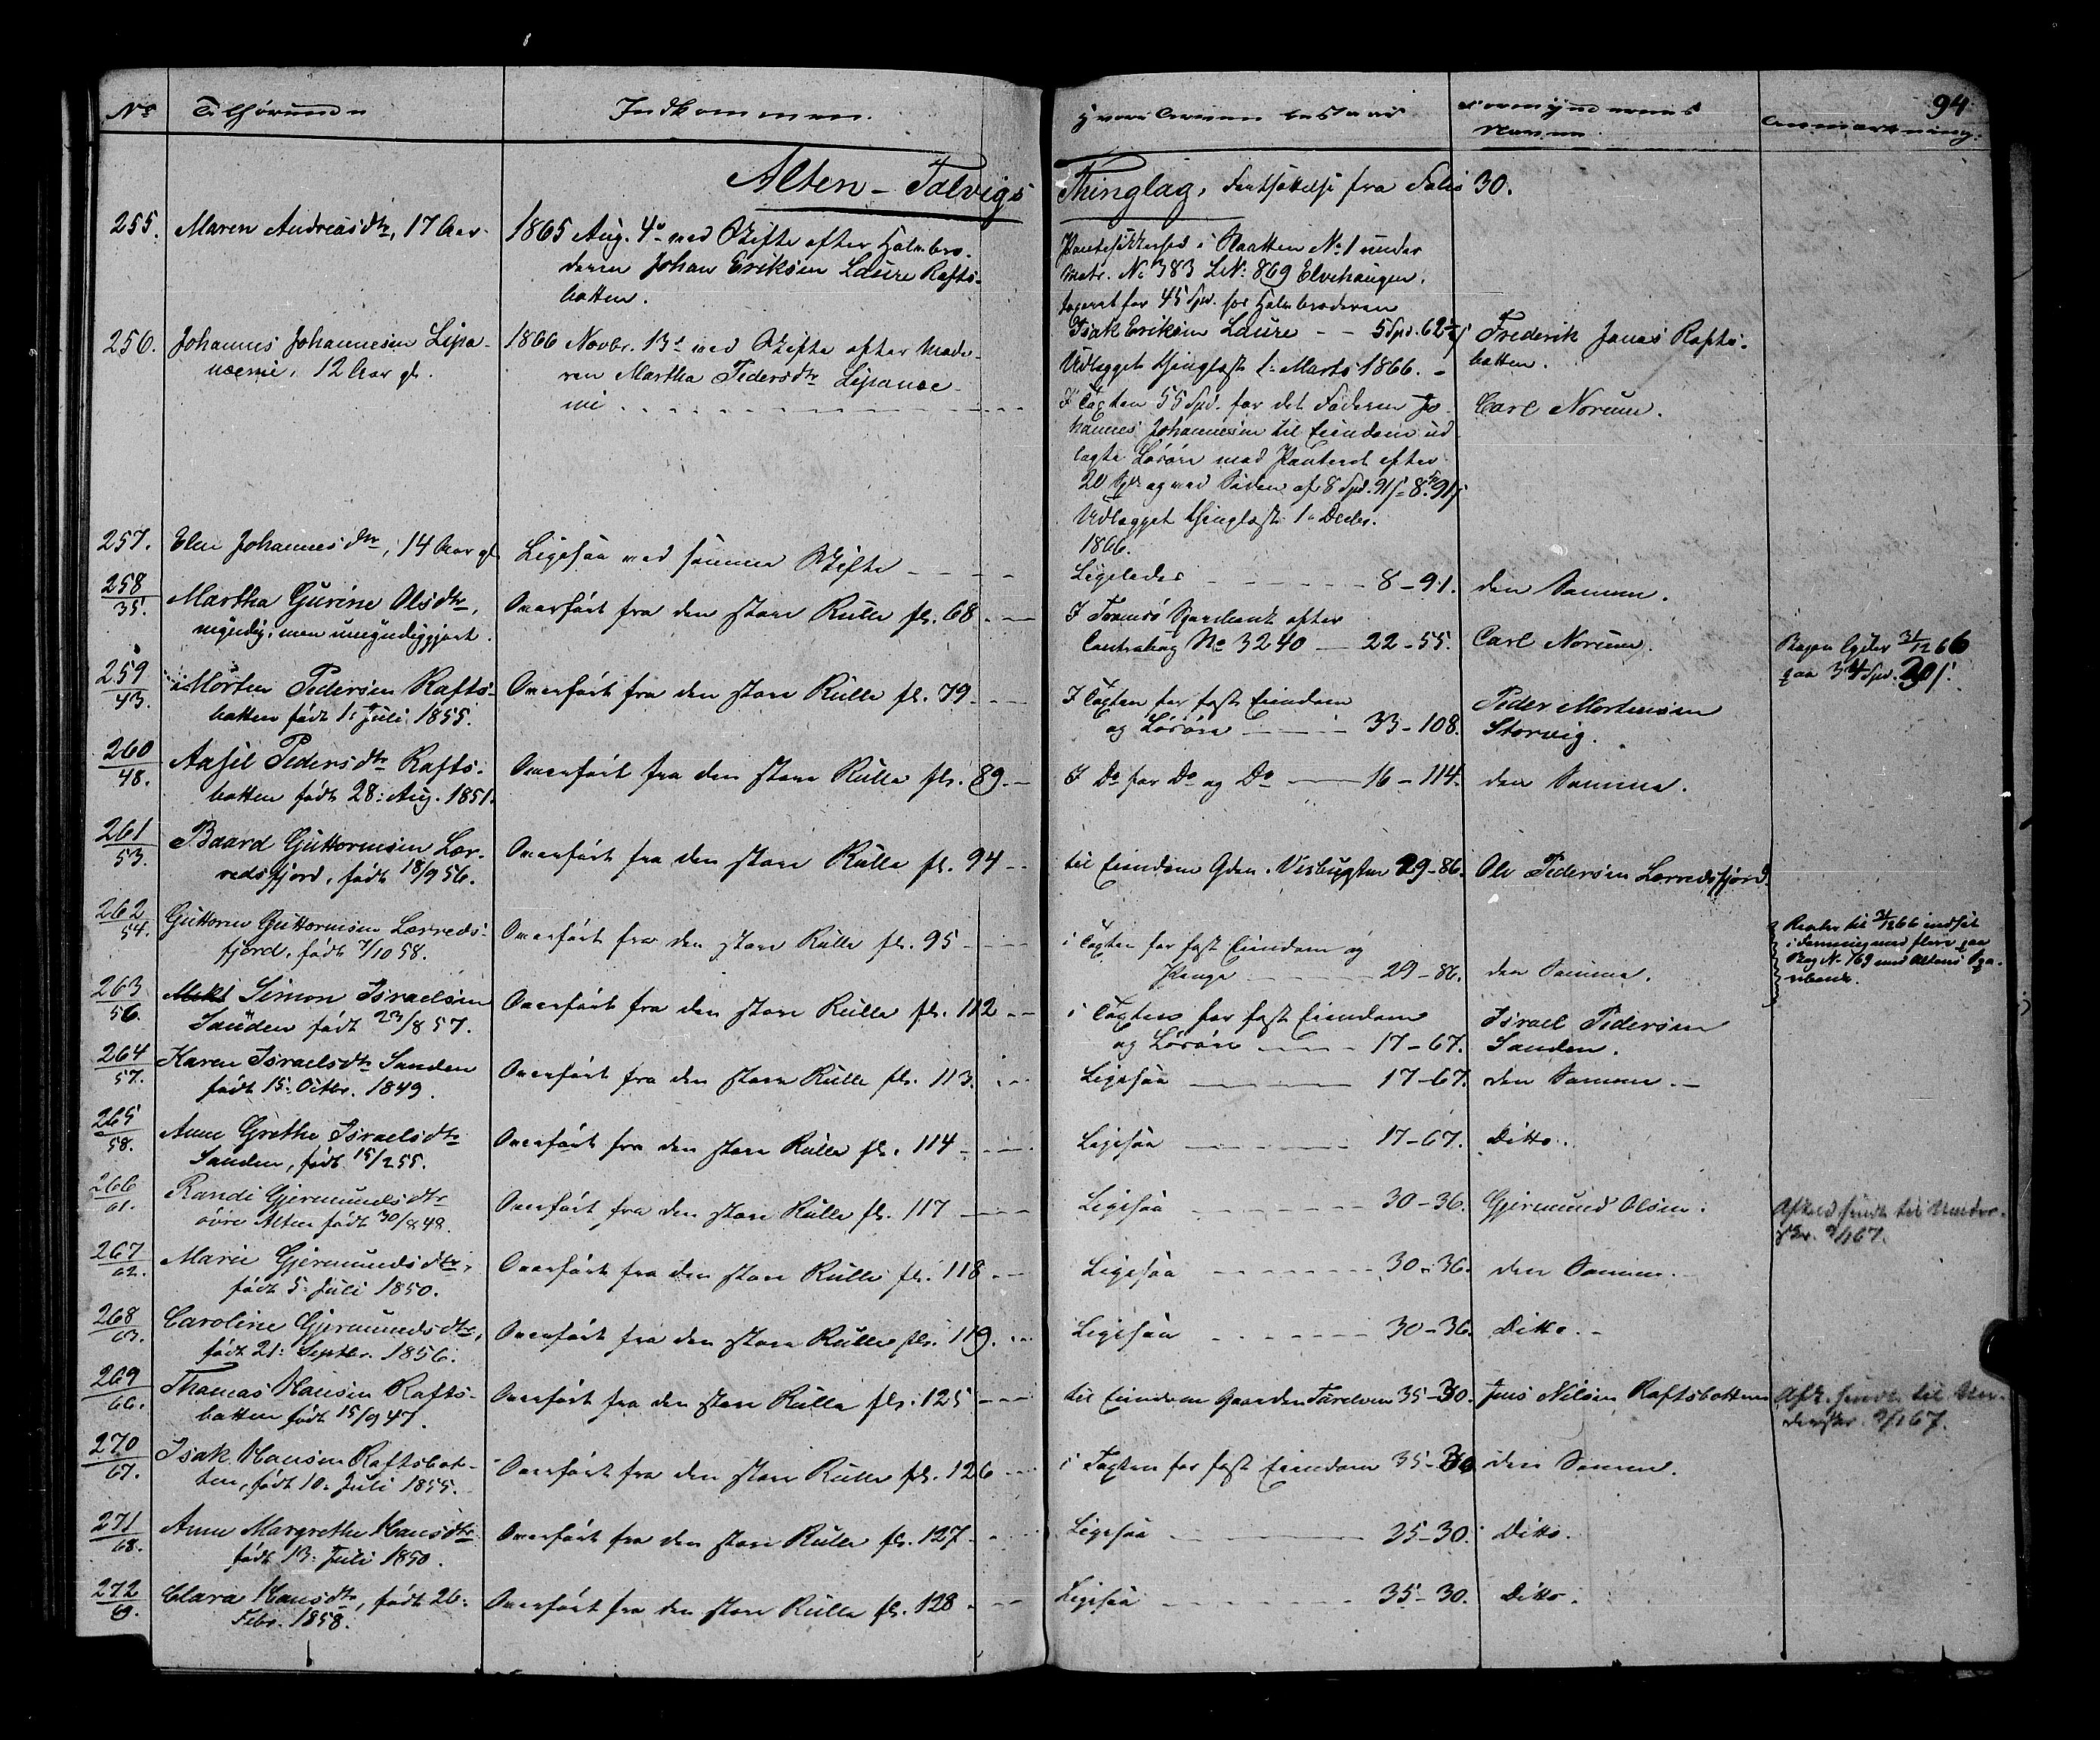 94
No Tilhørende Indkommen. Hvori Arven bestaar Formyndernes
Navne. Anmærkning.
Alten-Talvigs Thinglag, Fortsættelse fra Folio 30.
255. Maren Andreasdtr, 17 Aar. 1865 Aug. 4de ved Skifte efter Halvbro-
deren Johan Eriksen Laure Rafts-
botten.
Pantesikkerhed i Plaatten No 1 under
Matr. No 383 L.No. 869 Elvehaugen,
taxeret for 45 Spd. for Halvbroderen
Isak Eriksen Laure - - 5 Spd. 62½ s
Udlægget thinglæst 1: Marts 1866. -
Frederik Jonas Rafts-
botten.
256. Johannes Johannesen Lipa-
niemi, 12 Aar gl. 1866 Novbr. 13de ved Skifte efter Mode-
ren Martha Pedersdtr Lipanie-
mi
I Taxten 55 Spd. for det Faderen Jo-
hannes Johannesen til Eiendom ud-
lagte Løsøre med Panteret efter
20 Spd og ved Siden af 8 Spd. 91 s = 8-91 s
Udlægget thinglæst 1ste Decbr.
1866.
Carl Norum.
257. Elen Johannesdtr, 14 Aar gl. Ligesaa ved samme Skifte
Ligeledes 8-91. den Samme.
258/35. Martha Gurine Olsdtr,
myndig, men umyndiggjort. Overført fra den store Rulle fl. 68.
I Tromsø Sparebank efter
Contrabog No 3240 22-55. Carl Norum.
Bogen lyder 31/12 66
paa 34 Spd.
259/43. Morten Pedersen Rafts-
botten født 1: Juli 1855. Overført fra den store Rulle fl. 79.
I Taxten for fast Eiendom
og Løsøre 33-108. Peder Mortensen
Storvig.
260/48. Aasil Pedersdtr Rafts-
botten født 28: Aug. 1851. Overført fra den store Rulle fl. 89.
I Do for Do og Do 16-114. den Samme.
261/53. Baard Guttormsen Lær-
redsfjord, født 18/9 56. Overført fra den store Rulle fl. 94
til Eiendom Gden. Visbugten 29-86. Ole Pedersen Lærredsfjord.
262/54. Guttorm Guttormsen Lærreds-
fjord, født 7/10 58. Overført fra den store Rulle fl. 95
i Taxten for fast Eiendom og
Penge 29-86. den Samme.
Renter til 31/12 66 indsat
i Forening med flere paa
Bog No 169 med Altens Spa-
rebank.
263/56. Simon Israelsen
Sanden født 23/8 57. Overført fra den store Rulle fl. 112
i Taxten for fast Eiendom
og Løsøre 17-67. Israel Pedersen
Sanden.
264/57. Karen Israelsdtr Sanden
født 15: Octbr. 1849. Overført fra den store Rulle fl. 113.
Ligesaa 17-67. den Samme.
265/58. Anne Grethe Israelsdtr
Sanden, født 15/2 55. Overført fra den store Rulle fl. 114
Ligesaa 17-67. Ditto.
266/61. Randi Gjermundsdtr
øvre Alten født 30/8 48. Overført fra den store Rulle fl. 117
Ligesaa 30-36. Gjermund Olsen.
Afkald sendt til Under-
skr. 2/1 67.
267/62. Marie Gjermundsdtr,
født 5: Juli 1850. Overført fra den store Rulle fl. 118
Ligesaa 30-36. den Samme.
268/63. Caroline Gjermundsdtr,
født 21: Septbr. 1856. Overført fra den store Rulle fl. 119.
Ligesaa 30-36. Ditto.
269/66. Thomas Hansen Rafts-
botten født 15/9 47. Overført fra den store Rulle fl. 125
til Eiendom Gaarden 35-30. Jens Nilsen Raftsbotten
Afk. sendt til Un-
derskr. 2/1 67.
270/67. Isak Hansen Raftsbot-
ten, født 10: Juli 1855. Overført fra den store Rulle fl. 126
i Taxten for fast Eiendom 35-30 den Samme.
271/68. Anne Margrethe Hansdtr
født 13: Juli 1850. Overført fra den store Rulle fl. 127
Ligesaa 35-30. Ditto.
272/69. Clara Hansdtr, født 26:
Febr. 1858. Overført fra den store Rulle fl. 128
Ligesaa 35-30. Ditto.